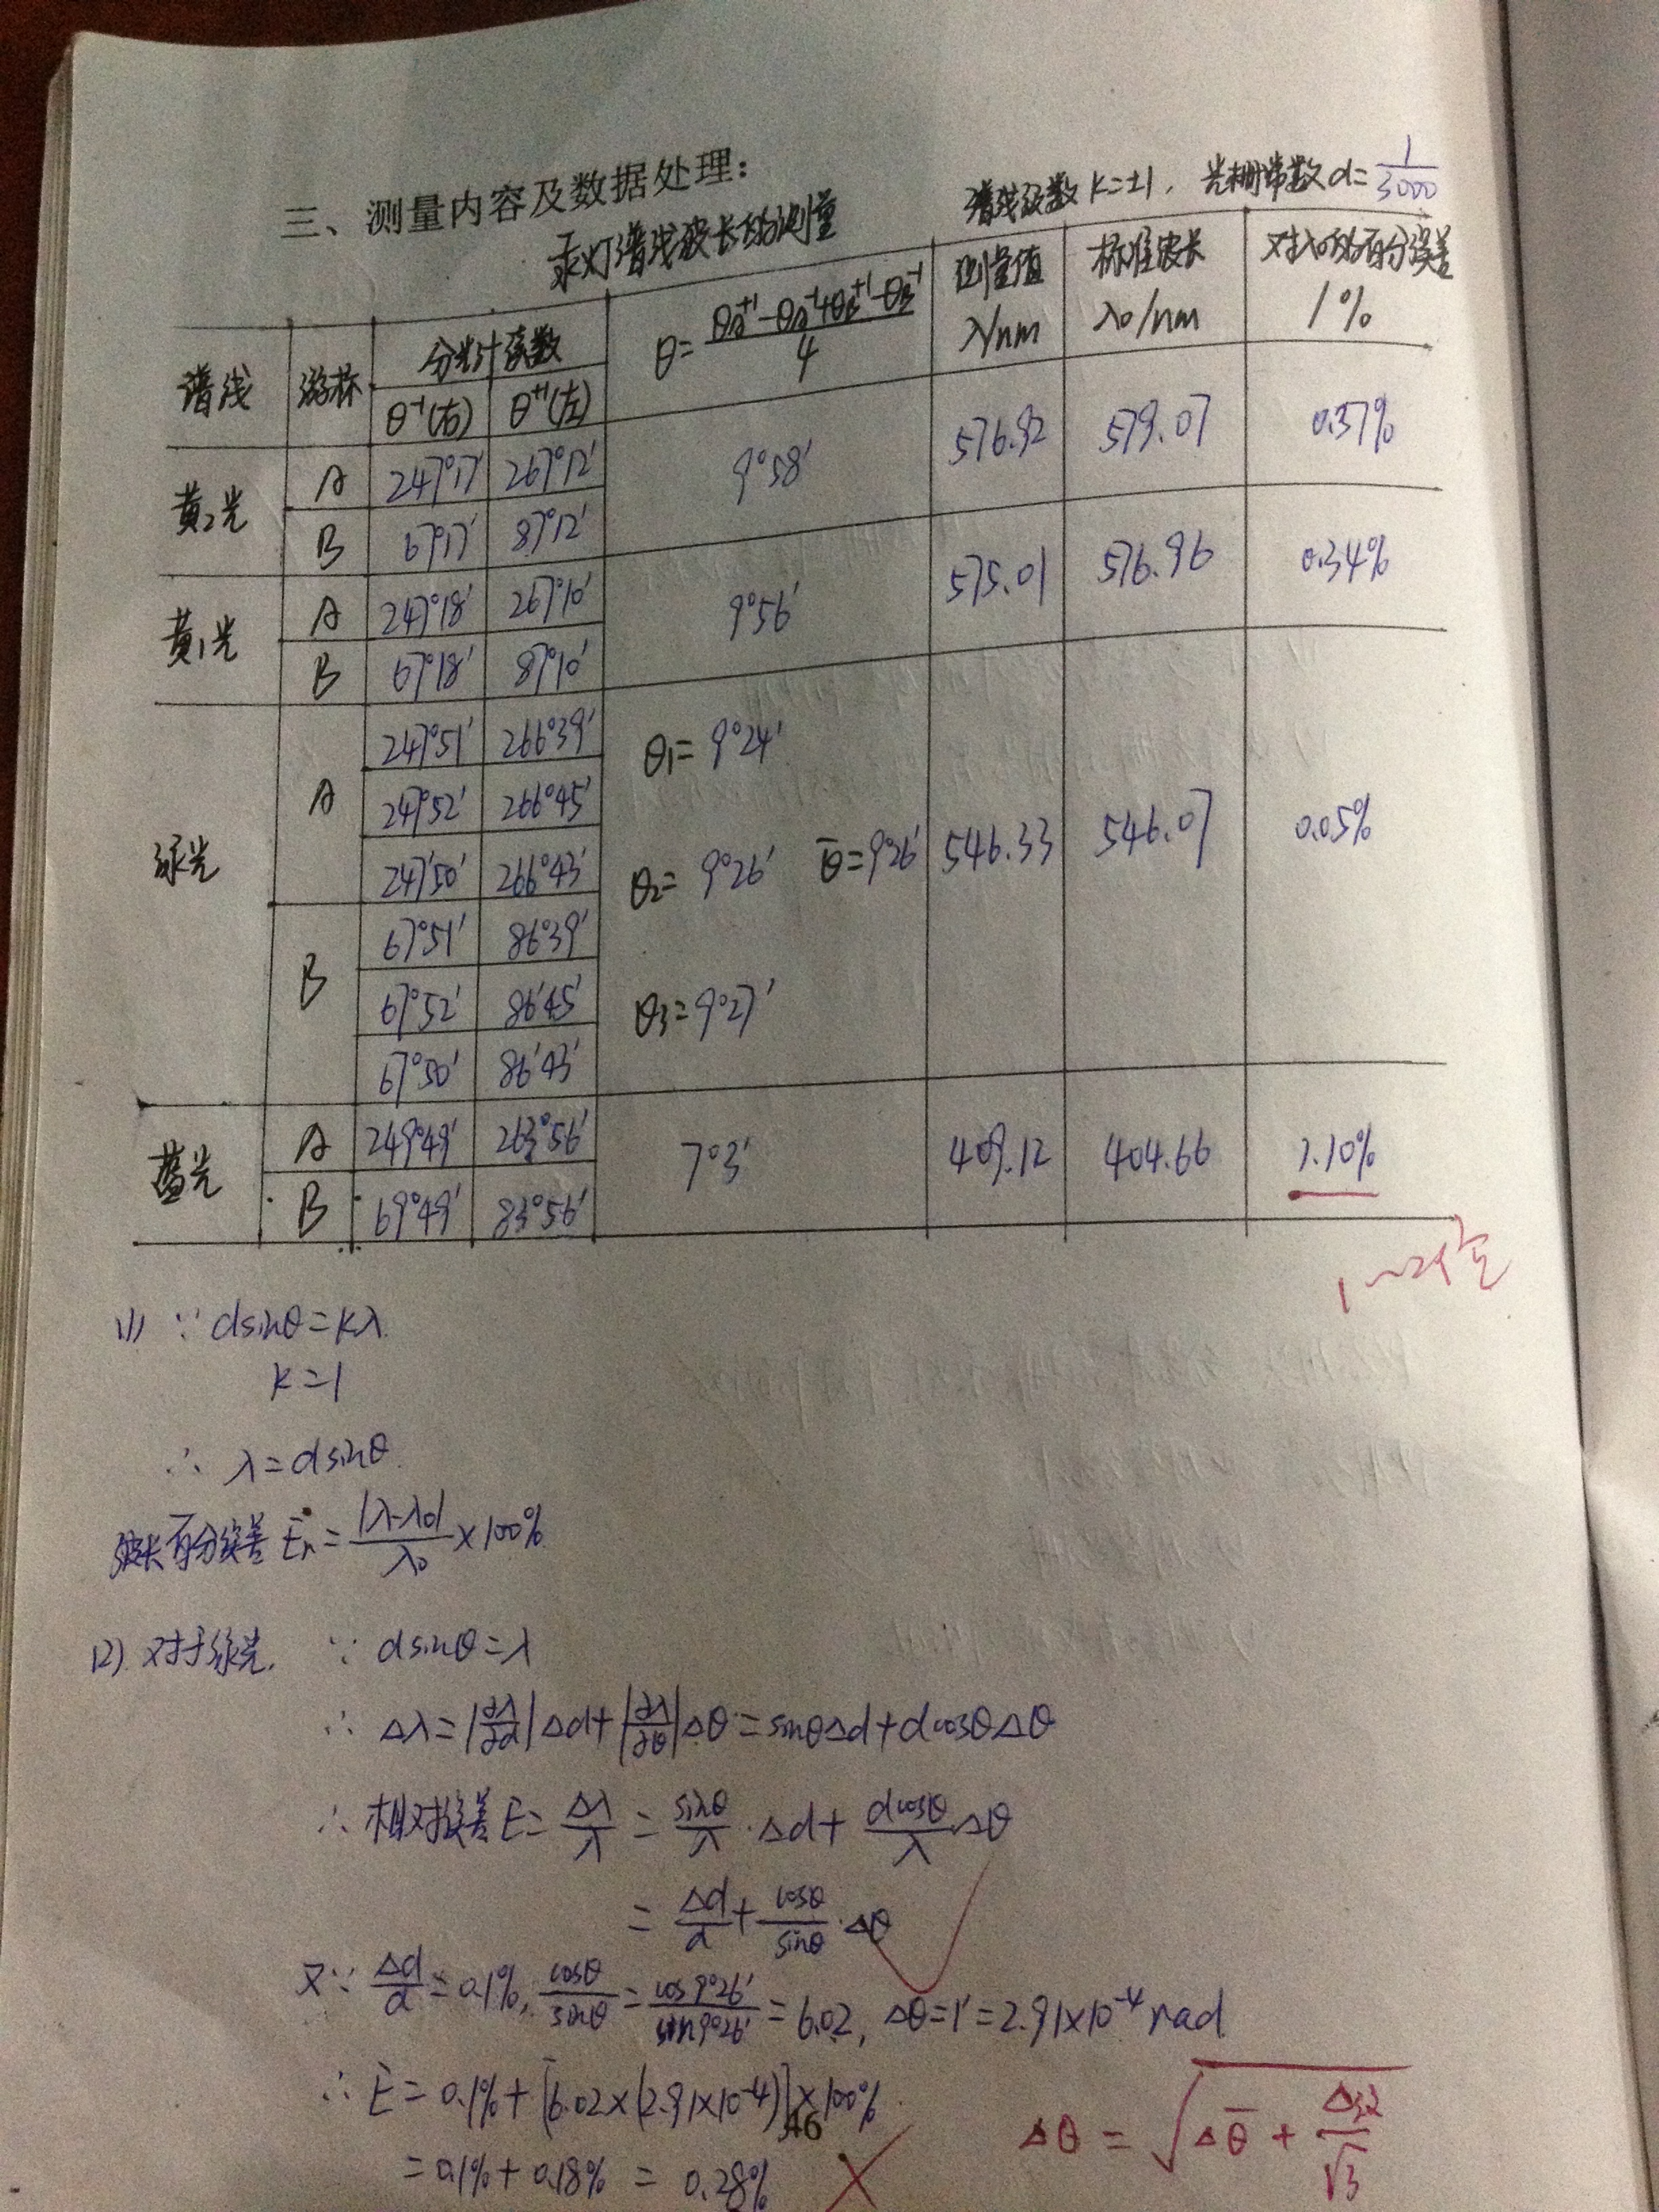 三、测量内容及数据处理：
汞灯谱线波长的测量
谱线级数 k=±1, 光栅常数 d=1/3000
谱线 游标 分光计读数 θ=(θA⁺¹-θA⁻¹+θB⁺¹-θB⁻¹)/4 测量值 λ/nm 标准波长 λ0/nm 对λ0的百分误差 /%
θ⁻¹(右) θ⁺¹(左)
黄2光 A 247°17′ 267°12′ 9°58′ 576.92 579.07 0.37%
B 67°17′ 87°12′
黄1光 A 247°18′ 267°10′ 9°56′ 575.01 576.96 0.34%
B 67°18′ 87°10′
绿光 A 247°51′ 266°39′ θ1=9°24′
247°52′ 266°45′
247°50′ 266°43′ θ2=9°26′ θ̄=9°26′ 546.33 546.07 0.05%
B 67°51′ 86°39′
67°52′ 86°45′ θ3=9°27′
67°50′ 86°43′
蓝光 A 249°49′ 263°56′ 7°3′ 409.12 404.66 1.10%
B 69°49′ 83°56′
1~2位
(1) ∵ dsinθ=kλ
k=1
∴ λ=dsinθ
波长百分误差 En=|λ-λ0|/λ0×100%
(2) 对于绿光, ∵ dsinθ=λ
∴ Δλ=|∂λ/∂d|Δd+|∂λ/∂θ|Δθ=sinθΔd+dcosθΔθ
∴ 相对误差E=Δλ/λ=sinθ/λ·Δd+dcosθ/λ·Δθ
=Δd/d+cosθ/sinθ·Δθ
又∵ Δd/d=0.1%, cosθ/sinθ=cos9°26′/sin9°26′=6.02, Δθ=1′=2.91×10⁻⁴rad
∴ E=0.1%+[6.02×(2.91×10⁻⁴)]×100%
=0.1%+0.18%=0.28%
46
Δθ=√(Δθ̄+Δ仪/√3)